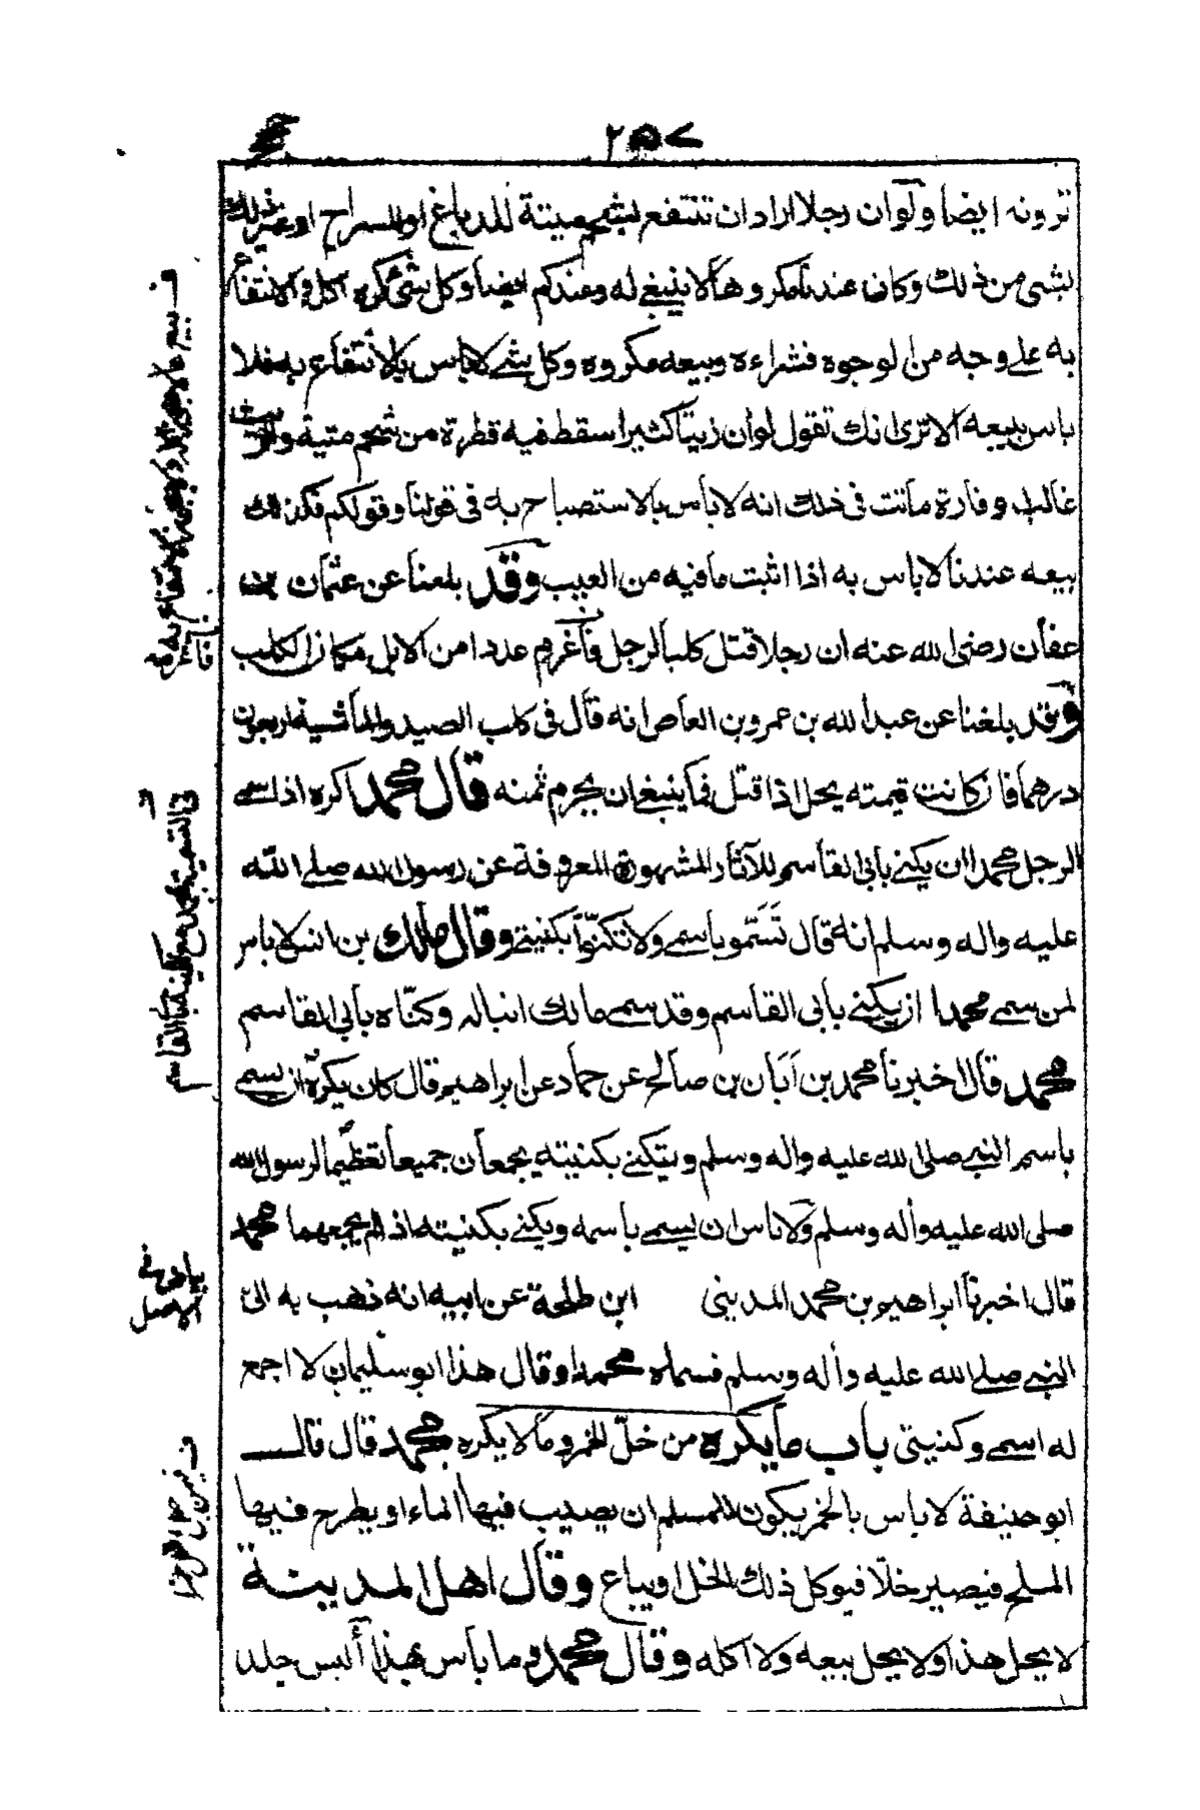 ٢٥٧
ترونه ايضا ولو ان رجلا اراد ان تنتفع بشحم ميتة للدباغ او للسراج او غير ذلك
بشئ من ذلك وكان عندنا مكروها لا ينبغي له وعندكم ايضا وكل شئ كره اكله والانتفاع
به على وجه من الوجوه فشراءه وبيعه مكروه وكل شئ لا باس بالانتفاع به فلا
باس ببيعه الا ترى انك تقول لو ان زيتا كثيرا سقط فيه قطرة من شحم متية والزيت
غالب وفارة ماتت في ذلك انه لا باس بالاستصباح به في قولنا وقولكم فكذلك
بيعه عندنا لا باس به اذا اثبت ما فيه من العيب وقد بلغنا عن عثمان بن
عفان رضى الله عنه ان رجلا قتل كلبا لرجل فاغرم عددا من الابل مكان الكلب
وقد بلغنا عن عبد الله بن عمرو بن العاص انه قال في كلب الصيد والماشية اربعون
درهما فان كانت قيمته يحل اذا قتل فما ينبغي ان يحرم ثمنه قال محمد اكره اذا سمى
الرجل محمدا ان يكنى بابى القاسم للآثار المشهورة المعروفة عن رسول الله صلى الله
عليه واله وسلم انه قال تَسَمّو باسمي ولا تكنّوا بكنيتي وقال مالك بن انس لا باس
لمن سمى محمدا ان يكنى بابى القاسم وقد سمى مالك انباله وكنّاه بابى القاسم
محمد قال اخبرنا محمد بن اَبَان بن صالح عن حماد عن ابراهيم قال كان يكره ان يسمى
باسم النبي صلى الله عليه واله وسلم ويتكنى بكنيته يجمعان جميعا تعظيما لرسول الله
صلى الله عليه واله وسلم ولا باس ان يسمى باسمه ويكنى بكنيته اذ الم يجمعهما محمد
قال اخبرنا ابراهيم بن محمد المديني ابن طلحة عن ابيه انه ذهب به الى
النبي صلى الله عليه واله وسلم فسماه محمدا وقال هذا ابو سليمان لا اجمع
له اسمى وكنيتى باب ما يكره من خلّ الخمر وما لا يكره محمد قال قال
ابو حنيفة لا باس بالخمر يكون للمسلم ان يصيب فيها الماء او يطرح فيها
الملح فيصير خلّا فيوكل ذلك الخل او يباع وقال اهل المدينة
لا يحل هذا ولا يحل بيعه ولا اكله وقال محمد وما باس بهذا أليس جلد
في التسمية بمحمد مع الكنية بابى القاسم
بياض في الاصل